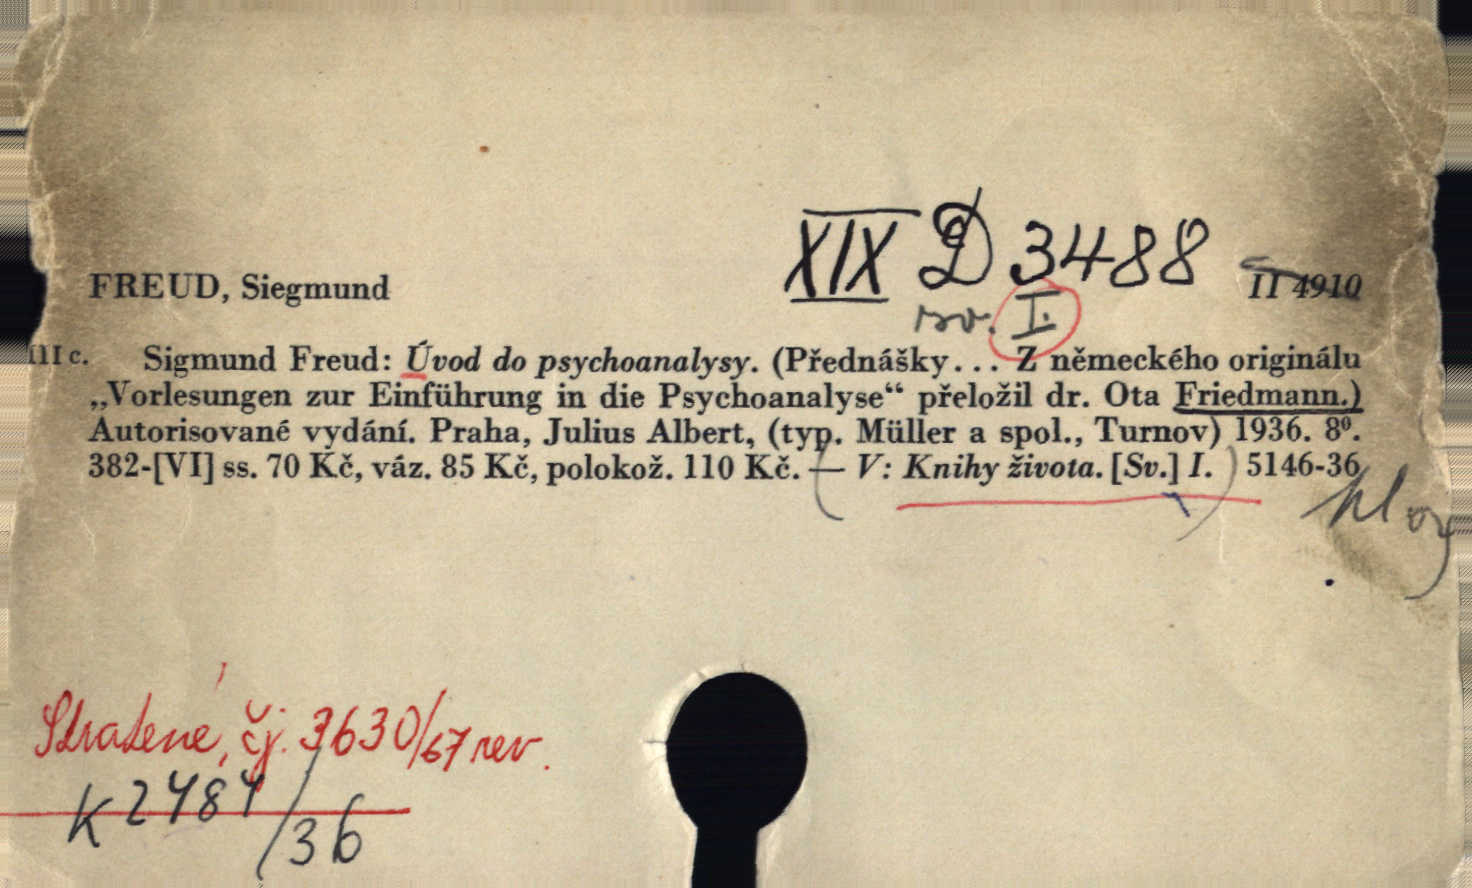 XIX D 3488
FREUD, Siegmund II 4910
sv. I.
III c. Sigmund Freud: Úvod do psychoanalysy. (Přednášky... Z německého originálu
„Vorlesungen zur Einführung in die Psychoanalyse“ přeložil dr. Ota Friedmann.)
Autorisované vydání. Praha, Julius Albert, (typ. Müller a spol., Turnov) 1936. 8⁰.
382-[VI] ss. 70 Kč, váz. 85 Kč, polokož. 110 Kč. — V: Knihy života. [Sv.] I. 5146-36
Ztracené, čj. 3630/67 rev.
K 2484/36